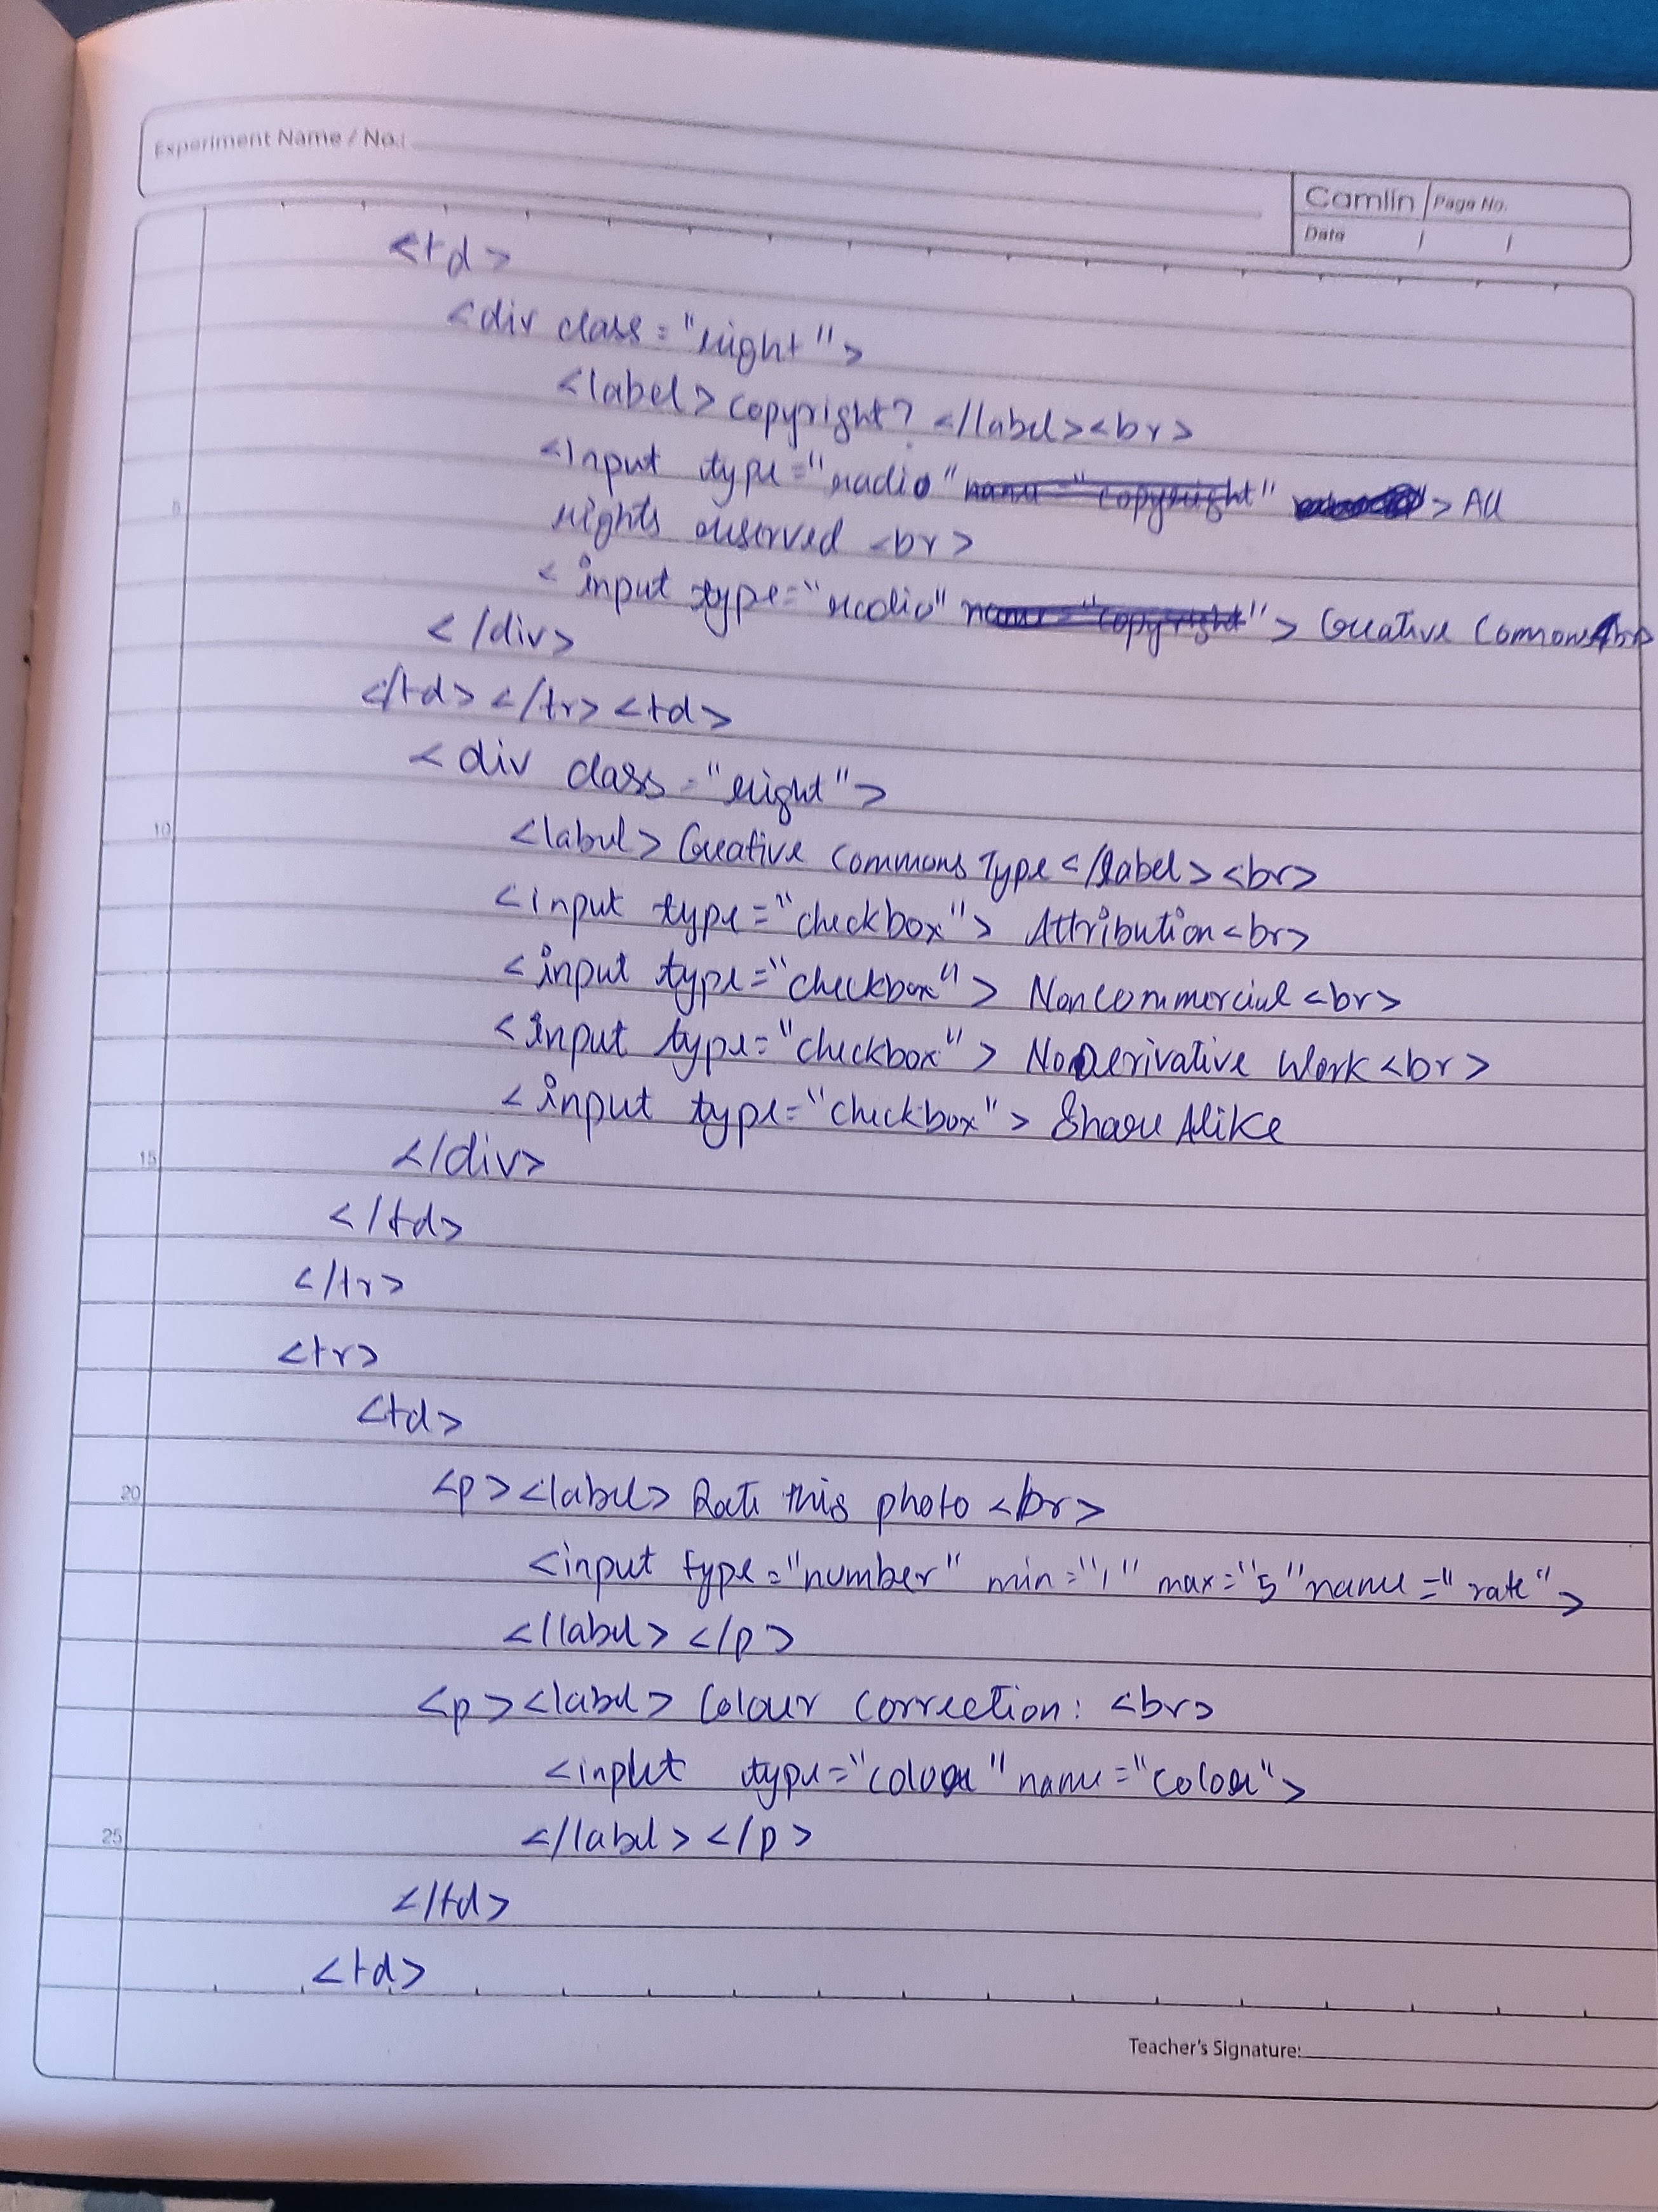 Experiment Name / No.:
Camlin Page No.
Date / /
<td>
<div class="right">
<label>copyright? </label><br>
<Input type="radio" name="copyright" > All
rights reserved <br>
<input type="radio" name="copyright"> Creative Commons
</div>
</td></tr><td>
<div class="right">
<label> Creative Commons Type</label><br>
<input type="checkbox"> Attribution<br>
<input type="checkbox"> Noncommercial<br>
<input type="checkbox"> NoDerivative Work<br>
<input type="checkbox"> Share Alike
</div>
</td>
</tr>
<tr>
<td>
<p><label> Rate this photo <br>
<input type="number" min="1" max="5" name="rate">
</label></p>
<p><label> Colour Correction: <br>
<input type="color" name="color">
</label></p>
</td>
<td>
5
10
15
20
25
Teacher's Signature: